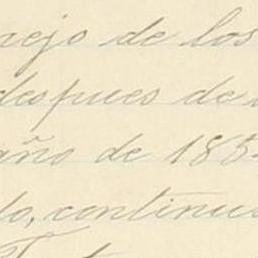 nejo de los
despues de
año de 185
do, continu